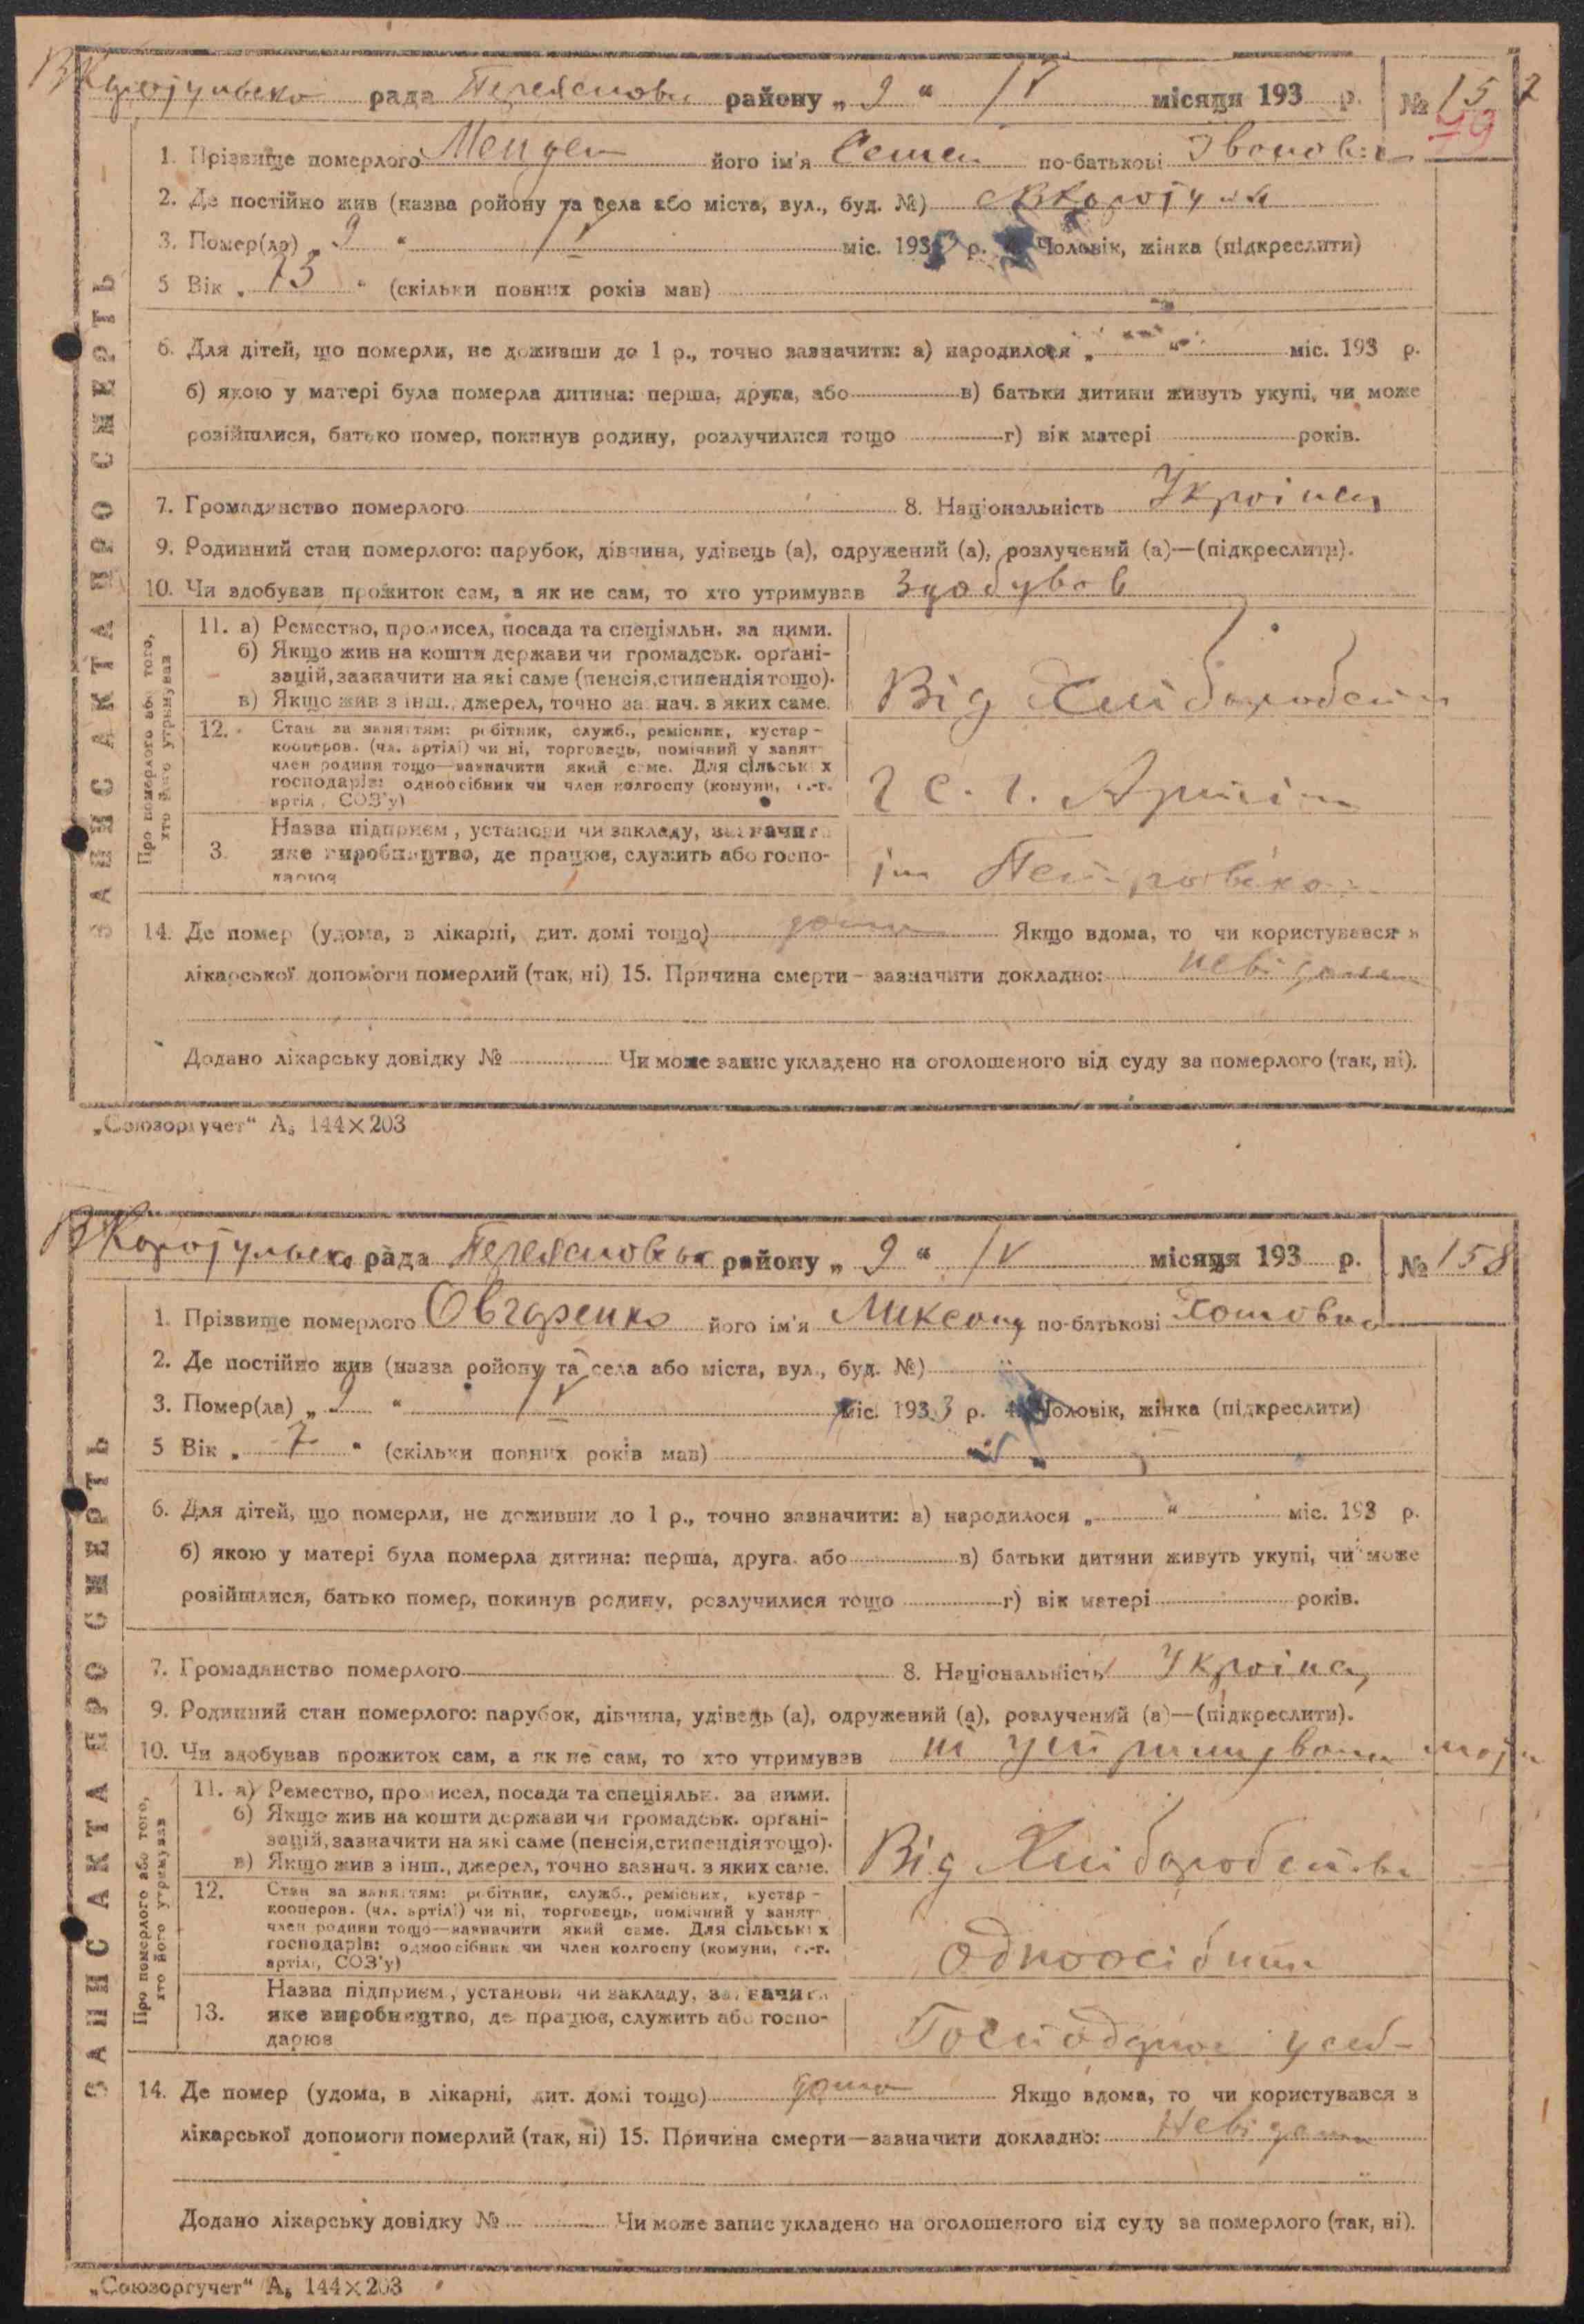 В Каротульська рада Переяслов району „ 9 “ IV місяця 193 р. № 157
79
1. Прізвище померлого його ім'я Семен по-батькові Іванович
2. Де постійно жив (назва ройону та села або міста, вул., буд. №)
3. Помер(ла) „ 9 “ IV міс. 1933 р. 4. Чоловік, жінка (підкреслити)
5 Вік „ 73 “ (скільки повних років мав)
6. Для дітей, що померли, не доживши до 1 р., точно зазначити: а) народилося „ “ міс. 193 р.
б) якою у матері була померла дитина: перша, друга, або в) батьки дитини живуть укупі, чи може
розійшлися, батько помер, покинув родину, розлучилися тощо г) вік матері років.
7. Громадянство померлого 8. Національність Украінец
9. Родинний стан померлого: парубок, дівчина, удівець (а), одружений (а), розлучений (а)—(підкреслити).
10. Чи здобував прожиток сам, а як не сам, то хто утримував Здобував
11. а) Ремество, промисел, посада та спеціяльн. за ними.
б) Якщо жив на кошти держави чи громадськ. орґані-
зацій, зазначити на які саме (пенсія, стипендія тощо).
в) Якщо жив з інш., джерел, точно зазнач. з яких саме.
Від Хліборобства
12. Стан за заняттям: робітник, служб., ремісник, кустар-
кооперов. (чл. артілі) чи ні, торговець, помічний у занят
член родини тощо—зазначити який саме. Для сільських
господарів: одноосібник чи член колгоспу (комуни, с.-г.
артілі, СОЗ'у)
с. г. Артіли
Назва підприєм., установи чи закладу, зазначита
3. яке виробництво, де працює, служить або госпо-
дарює
ім Петровсько
14. Де помер (удома, в лікарні, дит. домі тощо) дома Якщо вдома, то чи користувався з
лікарської допомоги померлий (так, ні) 15. Причина смерти — зазначити докладно: невідома
Додано лікарську довідку № Чи може запис укладено на оголошеного від суду за померлого (так, ні).
ЗАПИС АКТА ПРО СМЕРТЬ
Про померлого або того,
хто його утримував
„Союзоргучет“ А₅ 144×203
В Каротульська рада Переясловська району „ 9 “ IV місяця 193 р. № 158
1. Прізвище померлого Овчаренко його ім'я Миксонд по-батькові Хомович
2. Де постійно жив (назва ройону та села або міста, вул., буд. №)
3. Помер(ла) „ 9 “ IV міс. 1933 р. 4. Чоловік, жінка (підкреслити)
5 Вік „ 7 “ (скільки повних років мав)
6. Для дітей, що померли, не доживши до 1 р., точно зазначити: а) народилося „ “ міс. 193 р.
б) якою у матері була померла дитина: перша, друга, або в) батьки дитини живуть укупі, чи може
розійшлися, батько помер, покинув родину, розлучилися тощо г) вік матері років.
7. Громадянство померлого 8. Національність Украінец
9. Родинний стан померлого: парубок, дівчина, удівець (а), одружений (а), розлучений (а)—(підкреслити).
10. Чи здобував прожиток сам, а як не сам, то хто утримував ні
11. а) Ремество, промисел, посада та спеціяльн. за ними.
б) Якщо жив на кошти держави чи громадськ. орґані-
зацій, зазначити на які саме (пенсія, стипендія тощо).
в) Якщо жив з інш., джерел, точно зазнач. з яких саме.
Від Хліборобства
12. Стан за заняттям: робітник, служб., ремісник, кустар-
кооперов. (чл. артілі) чи ні, торговець, помічний у занят
член родини тощо—зазначити який саме. Для сільських
господарів: одноосібник чи член колгоспу (комуни, с.-г.
артілі, СОЗ'у)
одноосібник
Назва підприєм., установи чи закладу, зазначита
13. яке виробництво, де працює, служить або госпо-
дарює
Господарює у себ-
14. Де помер (удома, в лікарні, дит. домі тощо) дома Якщо вдома, то чи користувався з
лікарської допомоги померлий (так, ні) 15. Причина смерти—зазначити докладно: Невідома
Додано лікарську довідку № Чи може запис укладено на оголошеного від суду за померлого (так, ні).
ЗАПИС АКТА ПРО СМЕРТЬ
Про померлого або того,
хто його утримував
„Союзоргучет“ А₅ 144×203